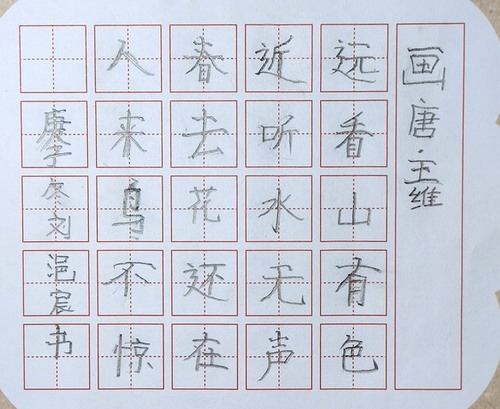 画唐·王维
远看山有色
近听水无声
春去花还在
人来鸟不惊
庚子冬刘浥宸书